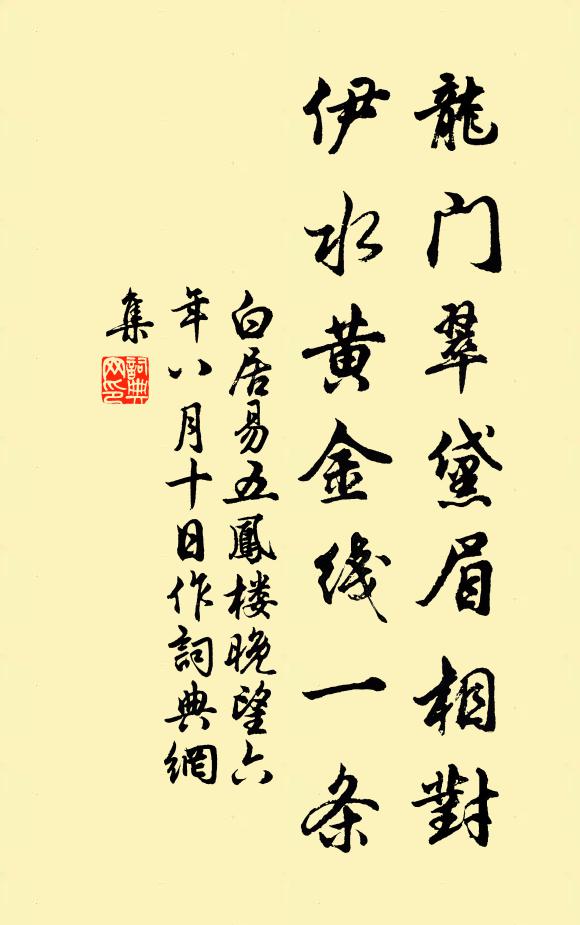 龍门翠黛眉相對
伊水黄金线一条
白居易五鳳楼晚望六
年八月十日作詞典網
集
詞典
网印